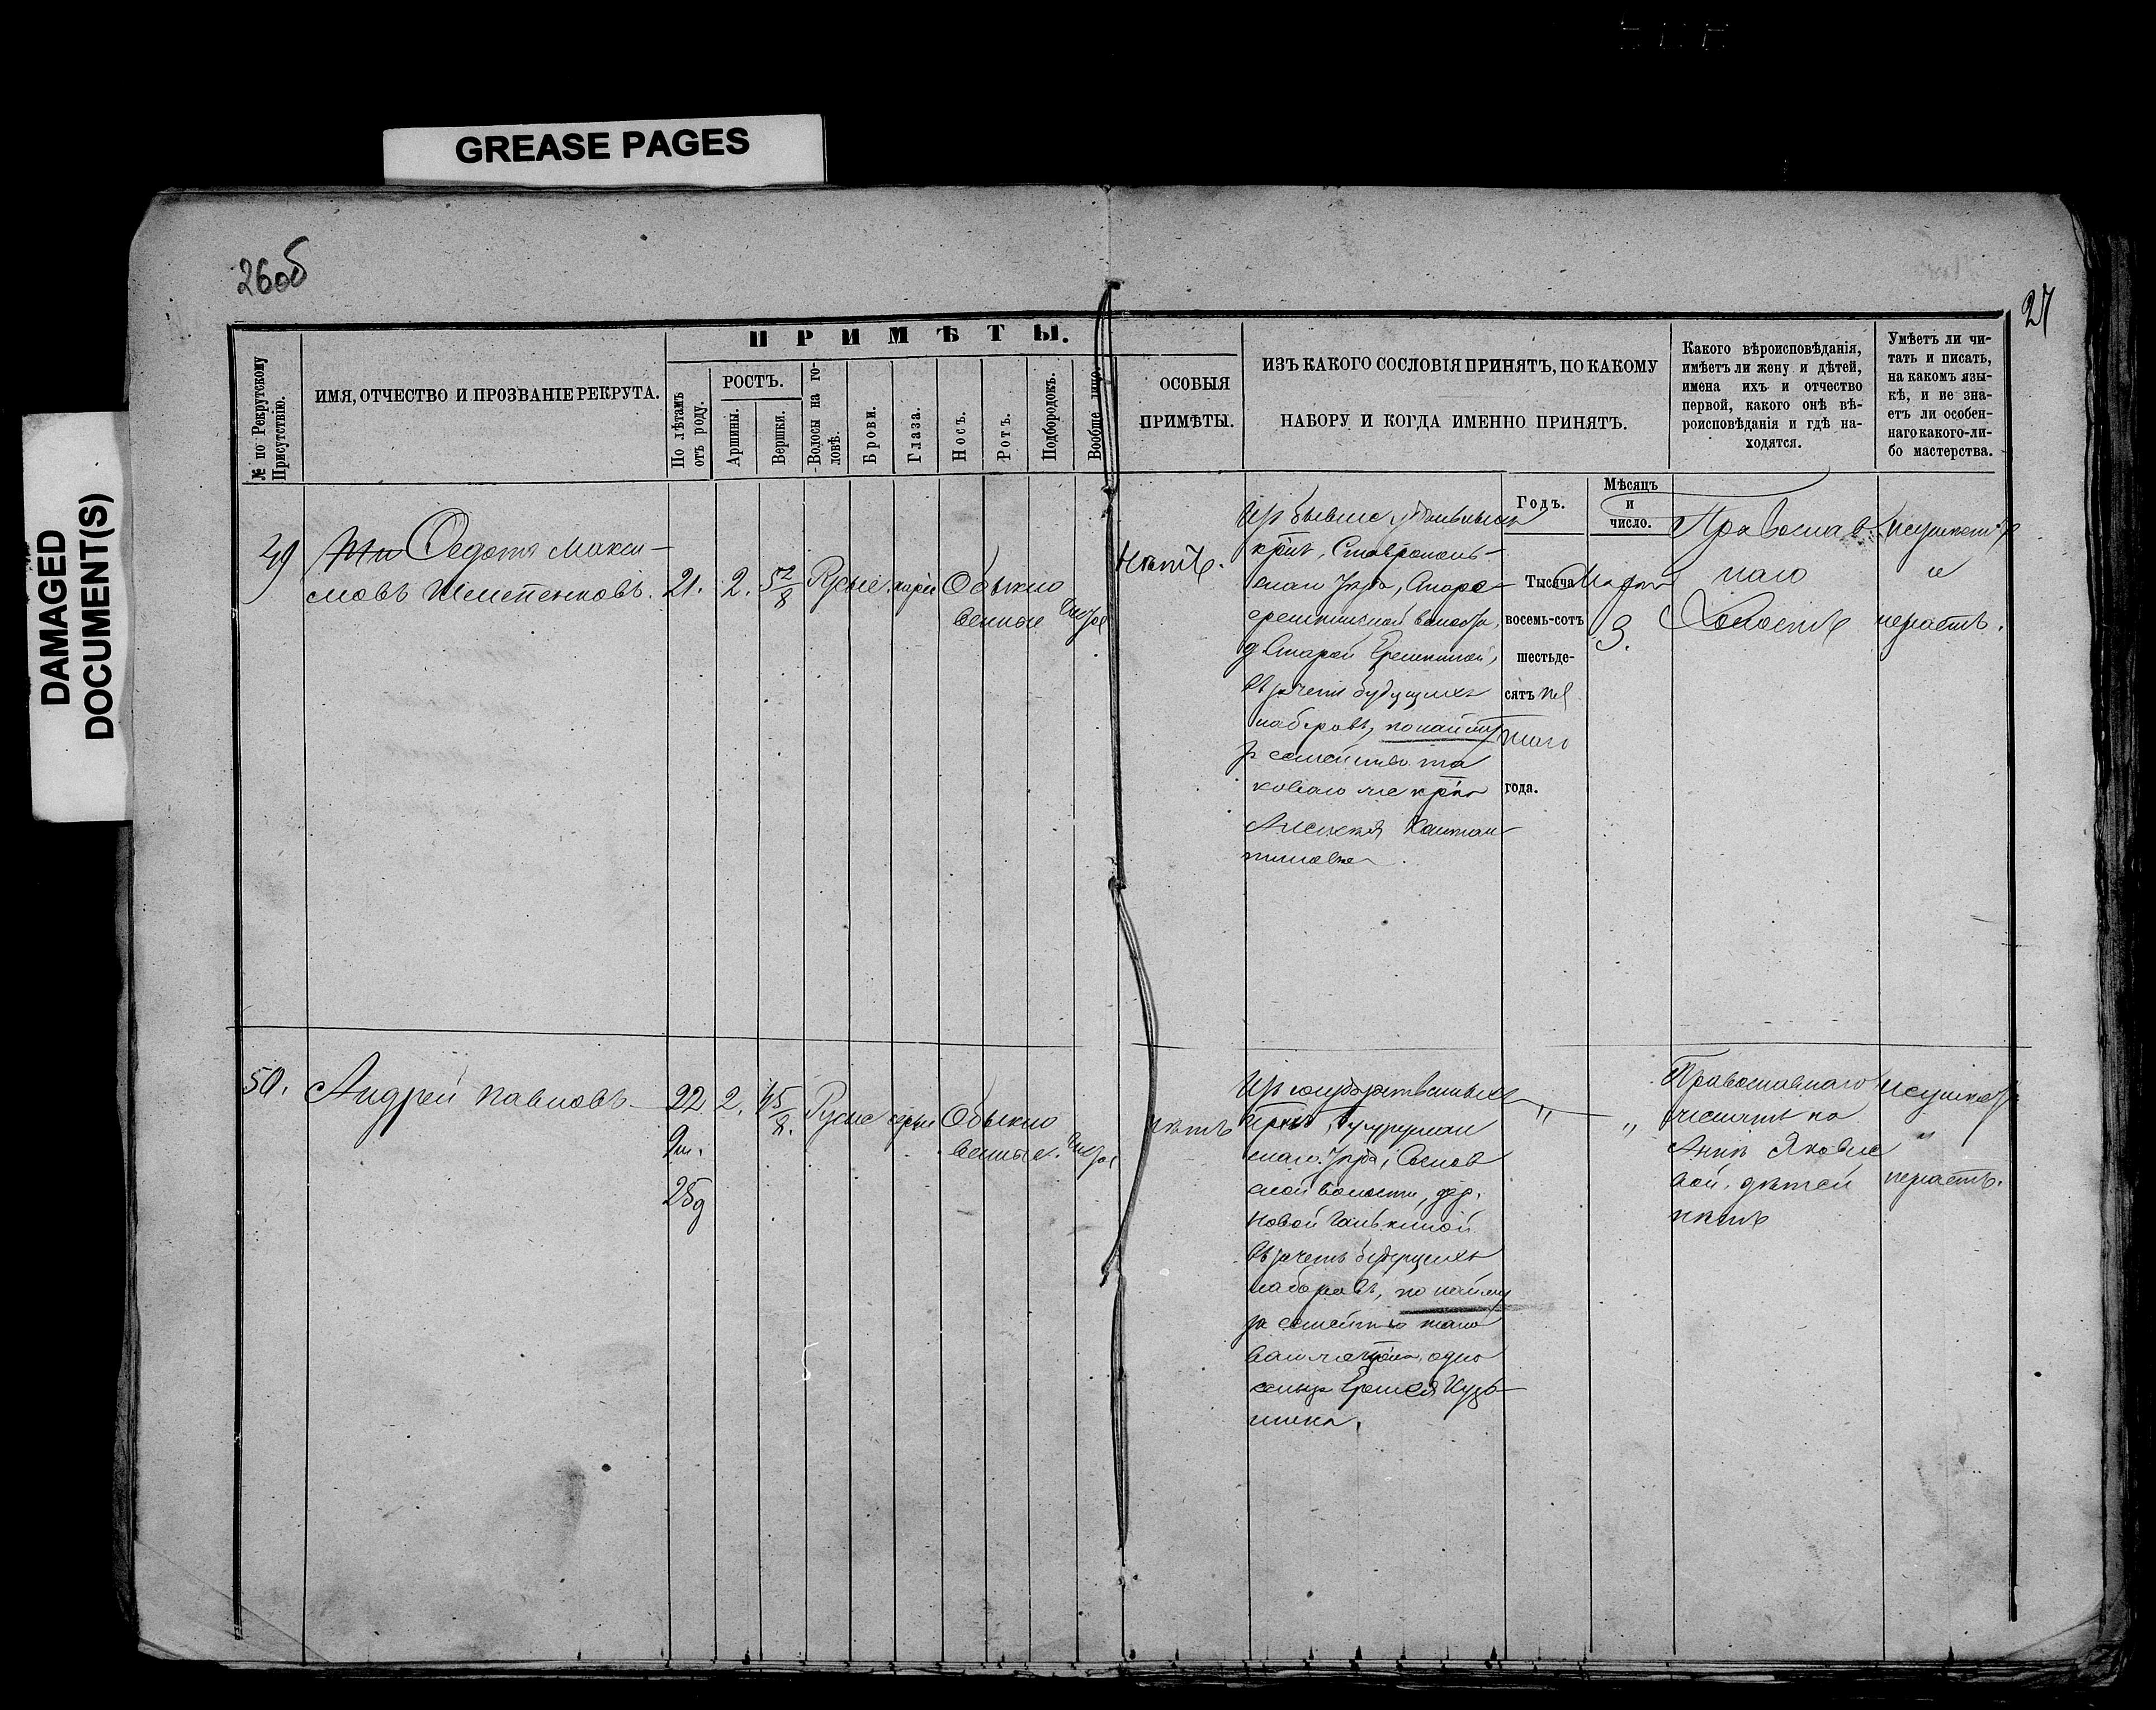 GREASE PAGES
DAMAGED
DOCUMENT(S)
26об
27
№ по Рекрутскому
Присутствію.
ИМЯ, ОТЧЕСТВО И ПРОЗВАНІЕ РЕКРУТА.
ПРИМѢТЫ.
По лѣтамъ
отъ роду.
РОСТЪ.
Аршины.
Вершки.
Волосы на го-
ловѣ.
Брови.
Глаза.
Носъ.
Ротъ.
Подбородокъ.
Вообще лицо.
ОСОБЫЯ
ПРИМѢТЫ.
ИЗЪ КАКОГО СОСЛОВІЯ ПРИНЯТЪ, ПО КАКОМУ
НАБОРУ И КОГДА ИМЕННО ПРИНЯТЪ.
Годъ.
Мѣсяцъ
и
число.
Какого вѣроисповѣданія,
имѣетъ ли жену и дѣтей,
имена ихъ и отчество
первой, какого онѣ вѣ-
роисповѣданія и гдѣ на-
ходятся.
Умѣетъ ли чи-
тать и писать,
на какомъ язы-
кѣ, и не зна-
етъ ли особен-
наго какого-ли-
бо мастерства.
49
Ѳедотъ Макси-
мовъ
21.
2.
5 2/8
Русые
каріе
Обыкно
венные
чистое
Нѣтъ.
Изъ бывшихъ удѣльныхъ
крѣ, Ставрополь-
скаго Уѣзда, Старо-
еремкинской волости,
д. Старой Еремкиной,
въ зачетъ будущихъ
наборовъ, по найму
за семейство та
коваго же крѣ
Алексѣя Констан
тинова
Тысяча
восемь-сотъ
шестьде-
сятъ
года.
Марта
3.
Православ
наго
Холостъ
неумѣетъ
и
незнаетъ.
50.
Андрей Павловъ
22
9м.
25д
2.
4 5/8.
Русые
сѣрые
Обыкно
венные.
чистое
нѣтъ
Изъ государственныхъ
крѣ, Бугуруслан
скаго Уѣзда, Соснов
ской волости, дер.
Новой Ганькиной
въ зачетъ будущихъ
наборовъ, по найму
за семейство тако
ваго же крѣ, одно
сельца Еремея Кузь-
мина.
"
"
Православнаго
женатъ на
Аннѣ Яковле
вой, дѣтей
нѣтъ
неумѣетъ
и
незнаетъ.